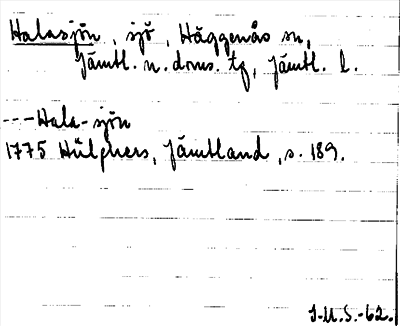 Halasjön, sjö, Häggenås sn,
Jämtl. n. doms. tg, Jämtl. l.
---Hala-sjön
1775 Hülphers, Jämtland, s. 189.
I.M.S.-62.